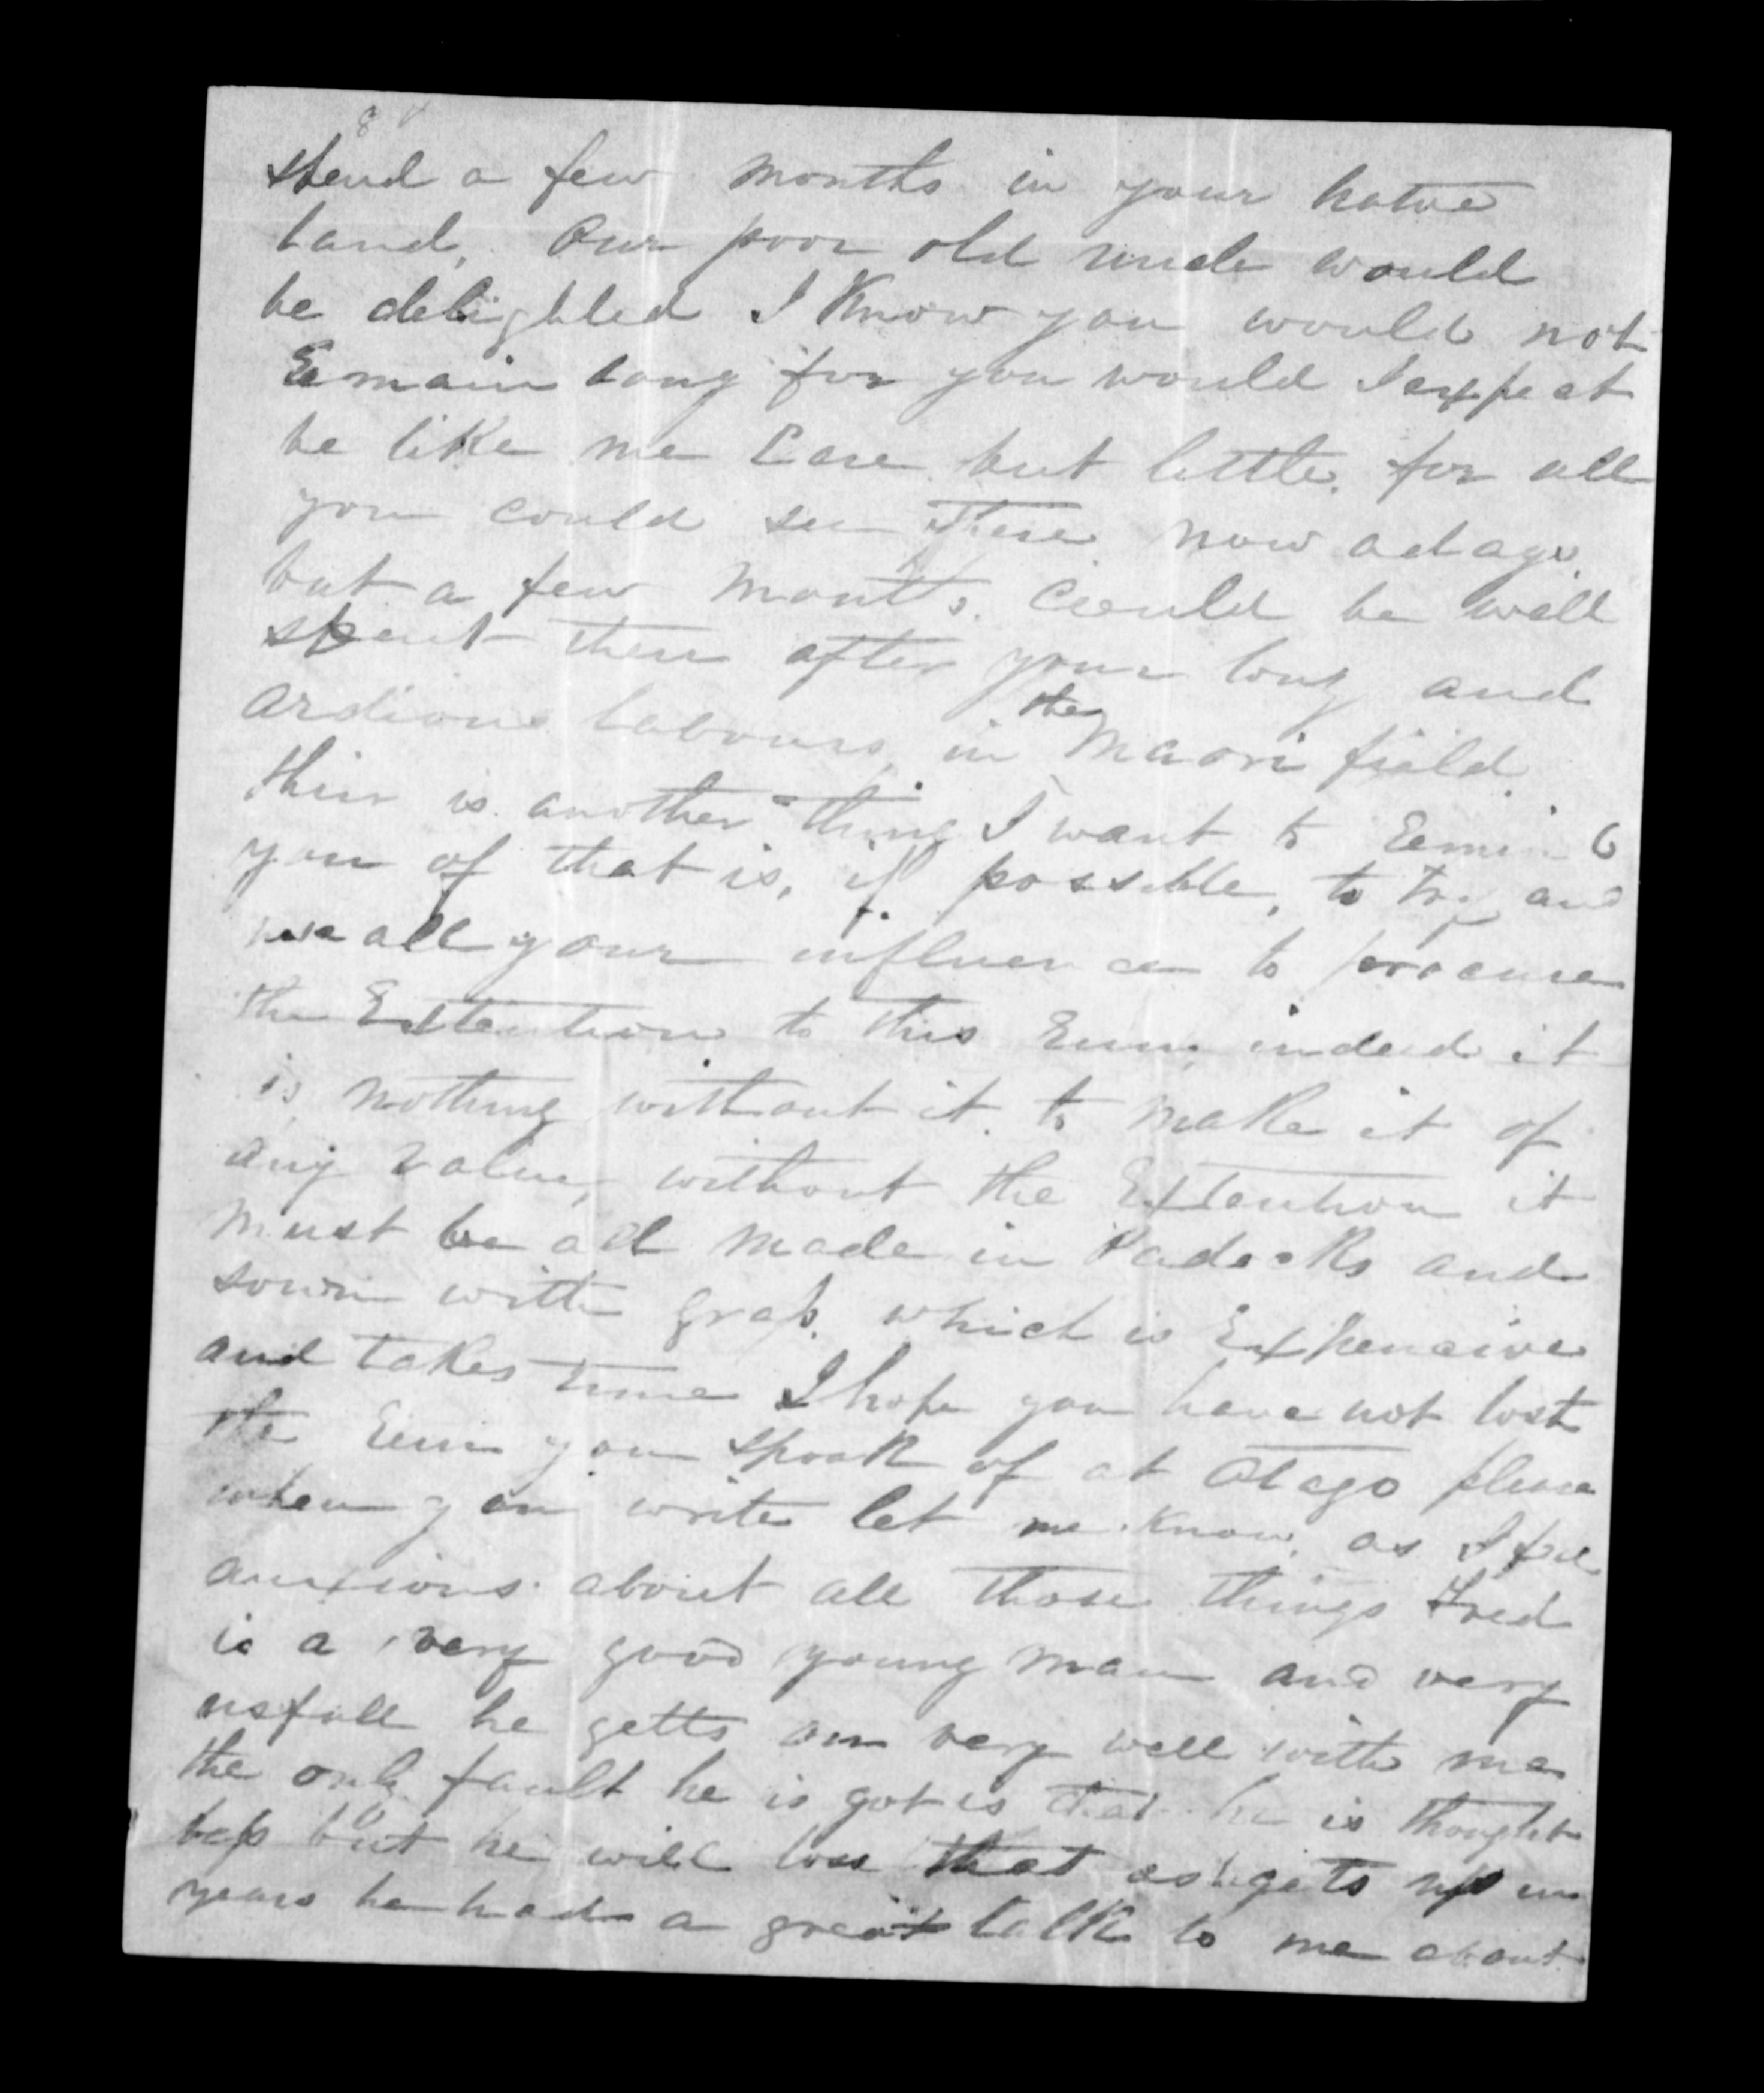 spend a few months in your native
land, Our poor old uncle would
be delighted I Know you would not
Remain long for you would I expect
be like me Care but little, for all
you could see there now adays
but a few months. Could be well
spent there after your long and
ardious labours, in the Maori field
thier is another thing I want to Remind
you of that is, if possible, to try and
use all your influence to procure
the Extention to this Run, indeed it
is nothing without it. to make it of
any value, without the Extention it
must be all made in Padocks and
sown with grass. which is Expensive
and takes time I hope you have not lost
the Run you spoak of at Otago please
when you write let me Know, as I feel
anxious about all those things Fred
is a very good young man and very
usfull he getts on very well with me
the only fault he is got is that he is thought
less but he will loss that as he gets up in
years he had a great talk to me about